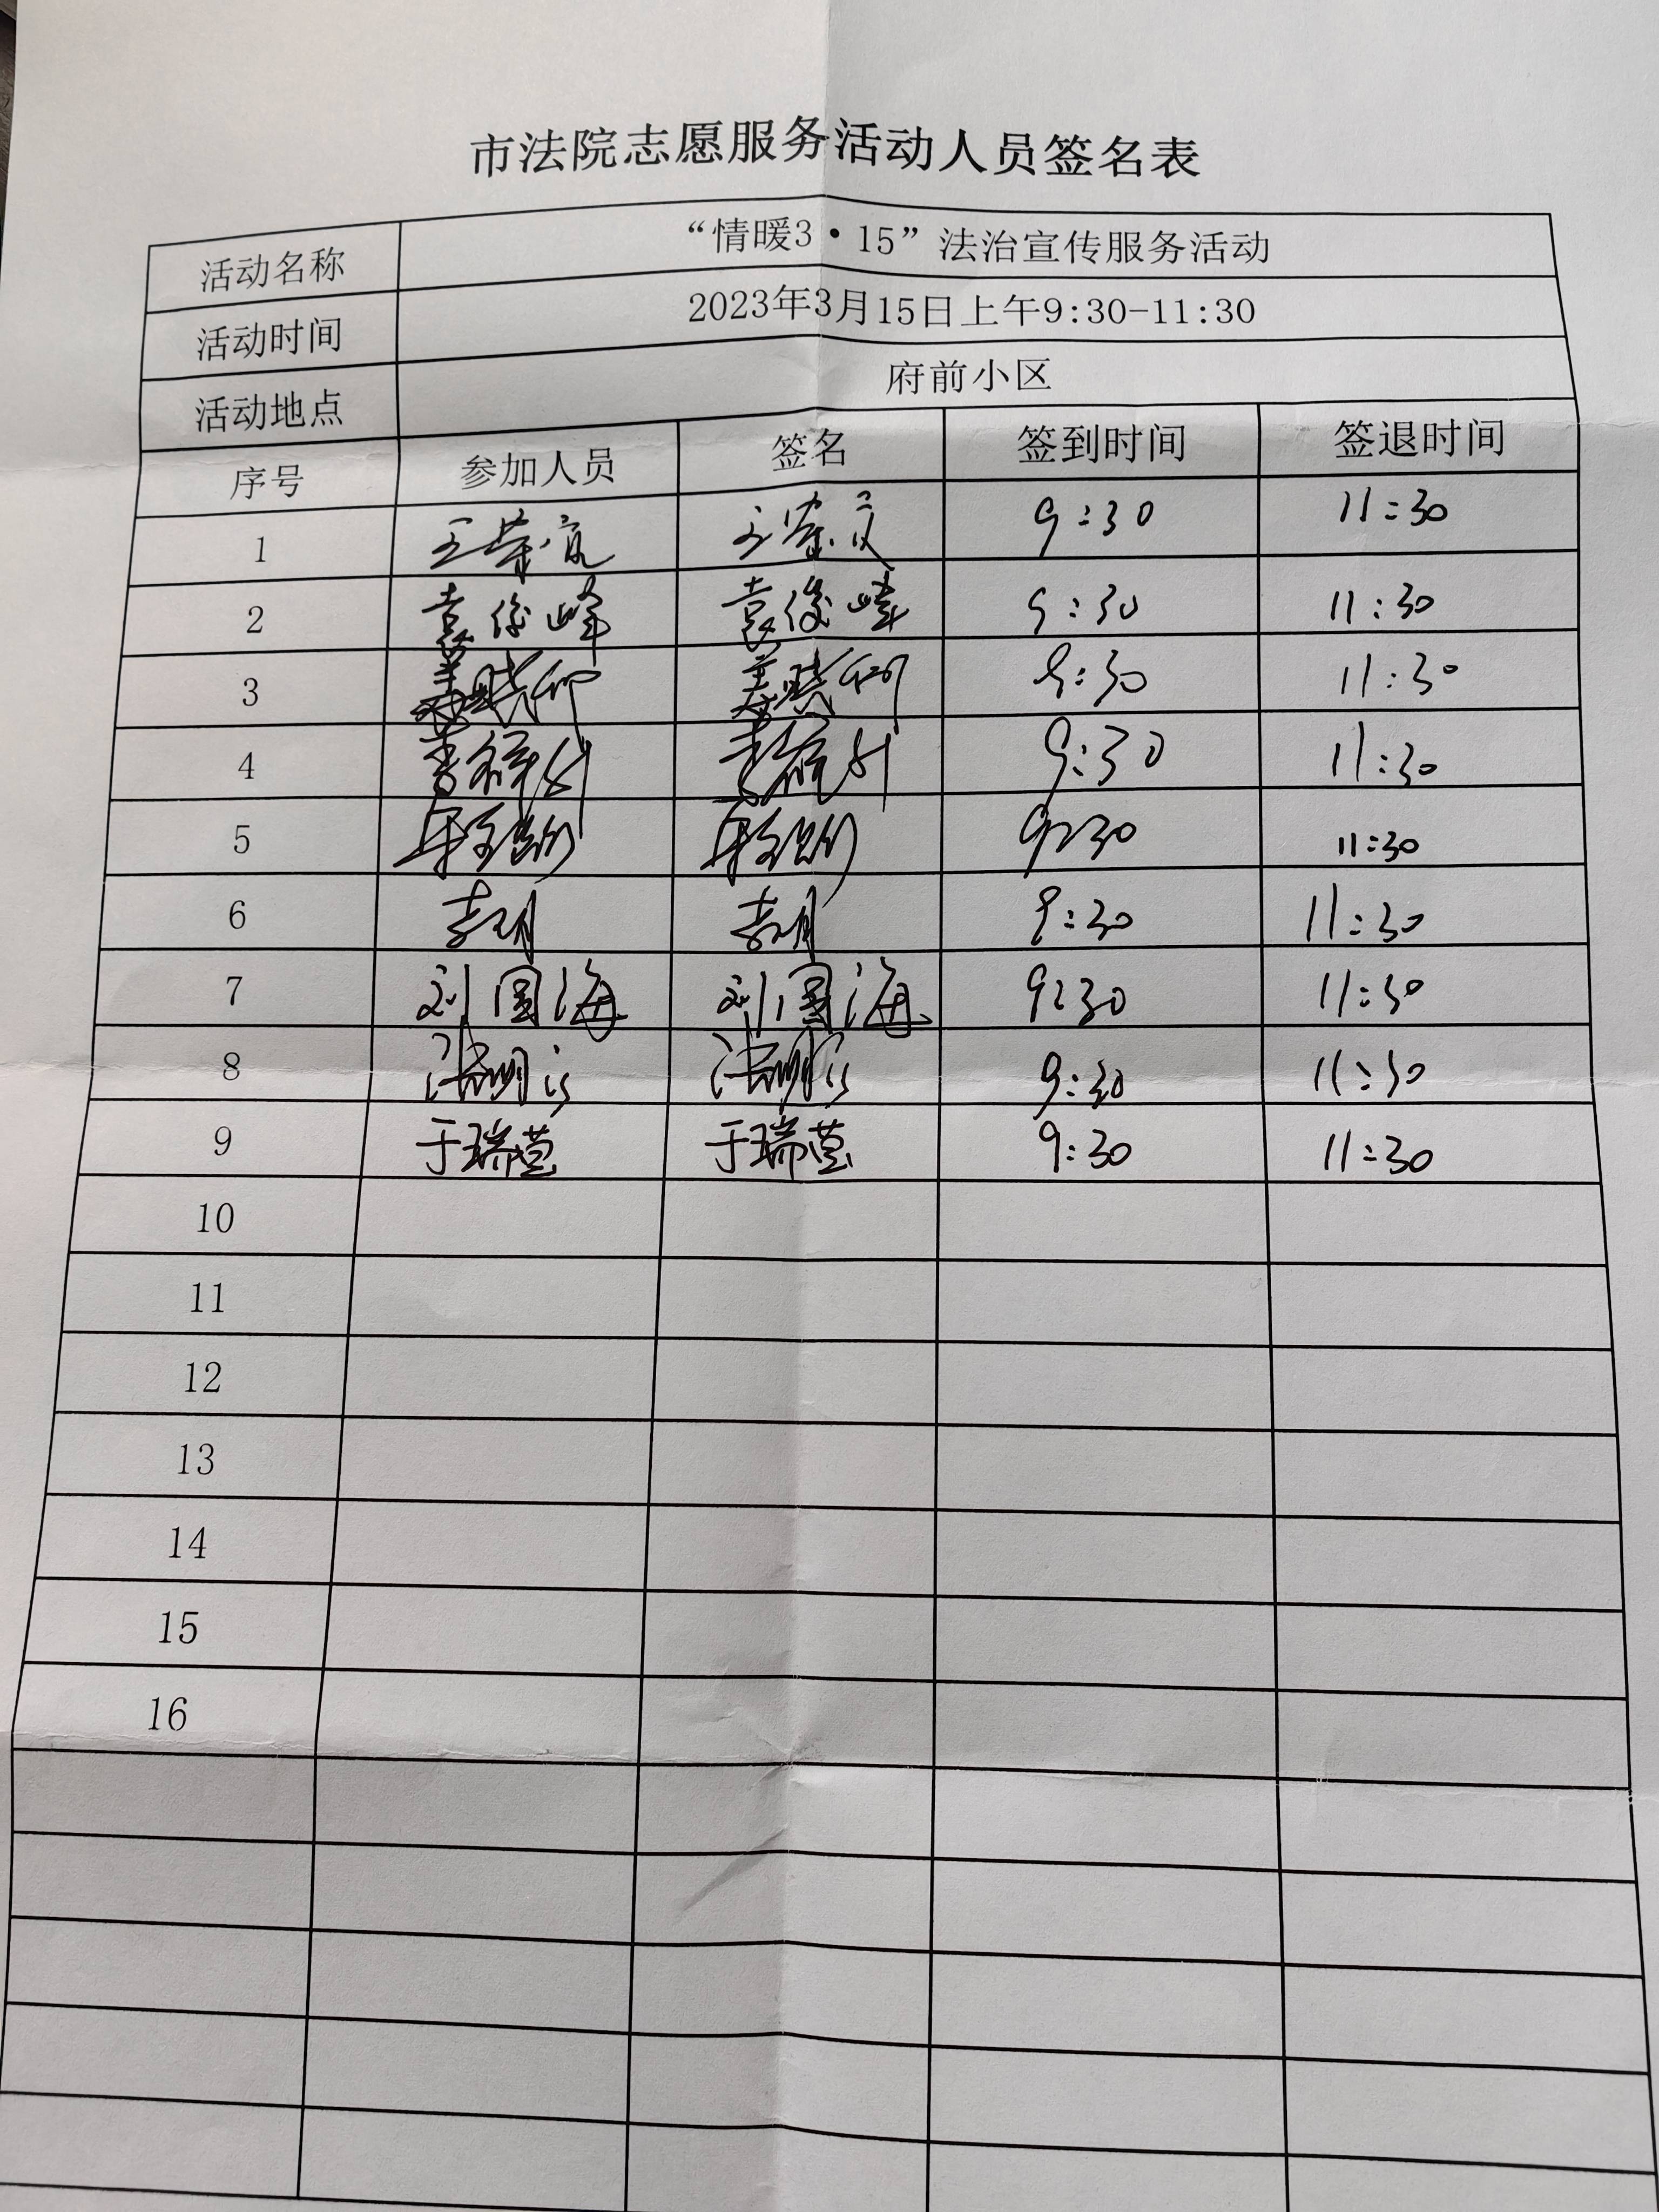 市法院志愿服务活动人员签名表
活动名称 “情暖3·15”法治宣传服务活动
活动时间 2023年3月15日上午9:30-11:30
活动地点 府前小区
序号 参加人员 签名 签到时间 签退时间
1 9:30 11:30
2 袁俊峰 袁俊峰 9:30 11:30
3 9:30 11:30
4 9:30 11:30
5 9:30 11:30
6 9:30 11:30
7 刘国海 刘国海 9:30 11:30
8 9:30 11:30
9 于瑞萱 于瑞萱 9:30 11:30
10
11
12
13
14
15
16